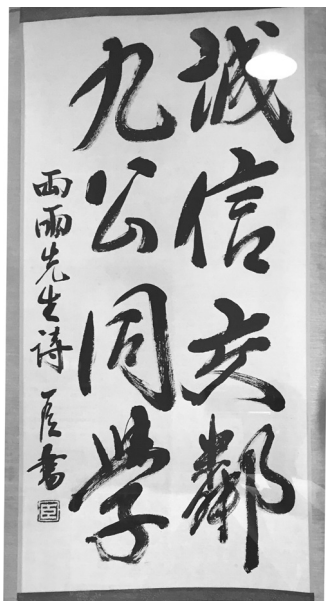 誠信交鄰
九公同學
雨先生詩 書